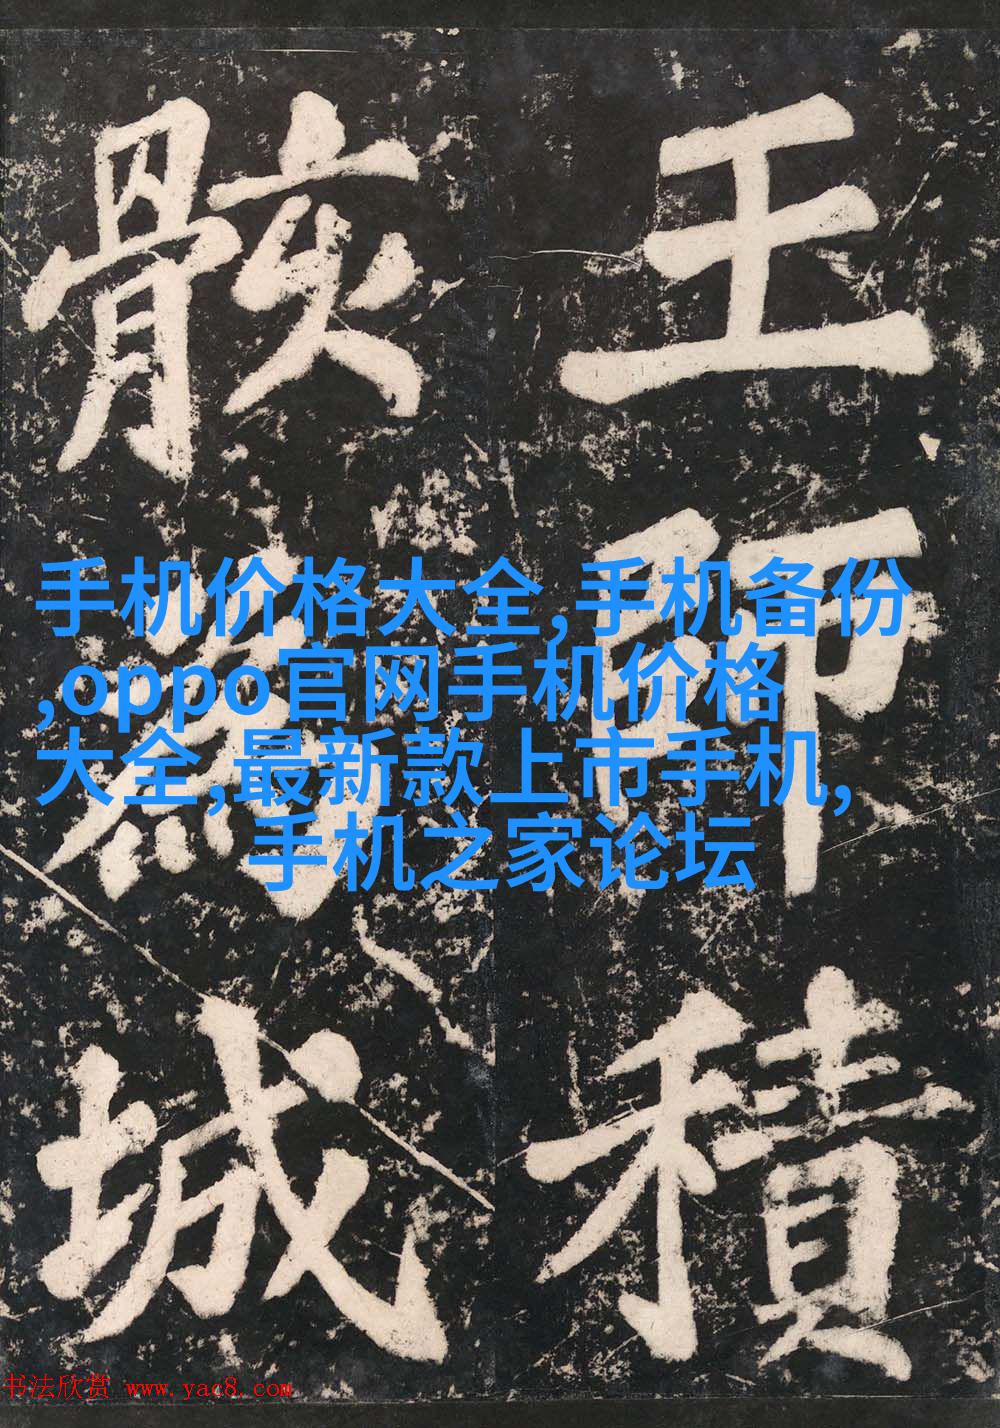 王師積
骸為城
手机价格大全,手机备份
,oppo官网手机价格
大全,最新款上市手机,
手机之家论坛
书法欣赏 www.yac8.com